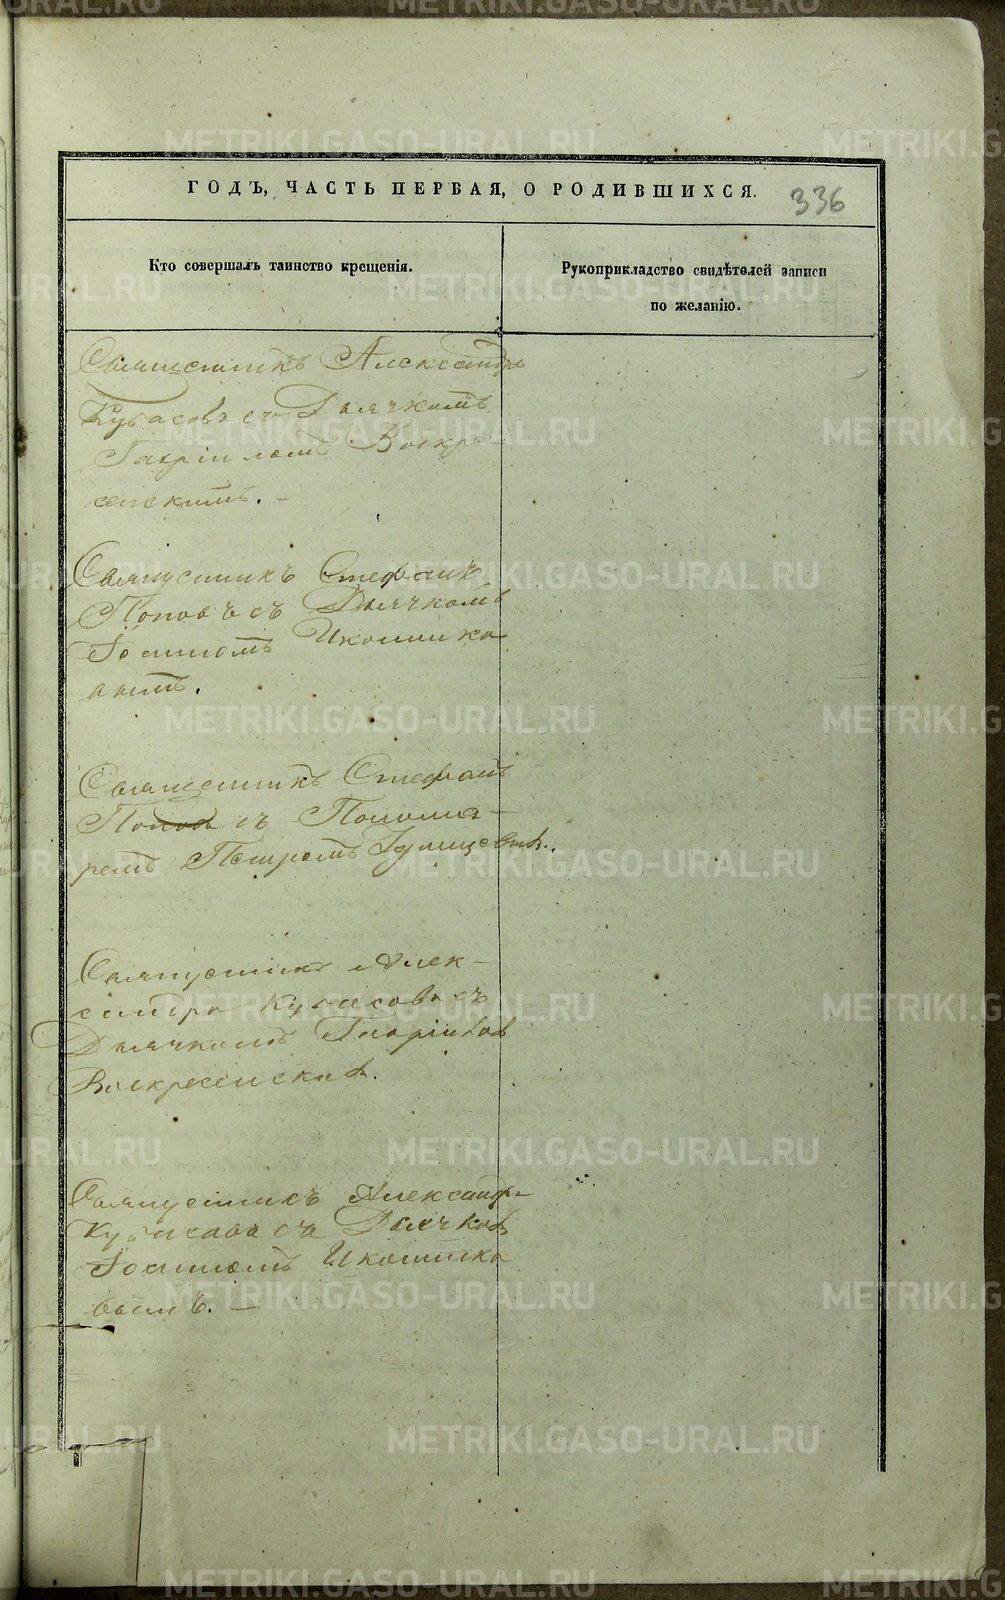 ГОДЪ, ЧАСТЬ ПЕРВАЯ, О РОДИВШИХСЯ.
336
Кто совершалъ таинство крещенія.
Рукоприкладство свидѣтелей записи
по желанію.
Священникъ Александръ
Кубасовъ съ Дьячкомъ
Гавріиломъ Воскре-
сенскимъ. -
Священникъ Стефанъ
Поповъ съ Дьячкомъ
Іоанномъ Иконнико
вымъ.
Священникъ Стефанъ
Поповъ съ Понома-
ремъ Петромъ
Священникъ Алек-
сандръ Кубасовъ съ
Дьячкомъ Гавріиломъ
Воскресенскимъ.
Священникъ Александръ
Кубасовъ съ Дьячкомъ
Іоанномъ Иконнико
вымъ. -
METRIKI.GASO-URAL.RU